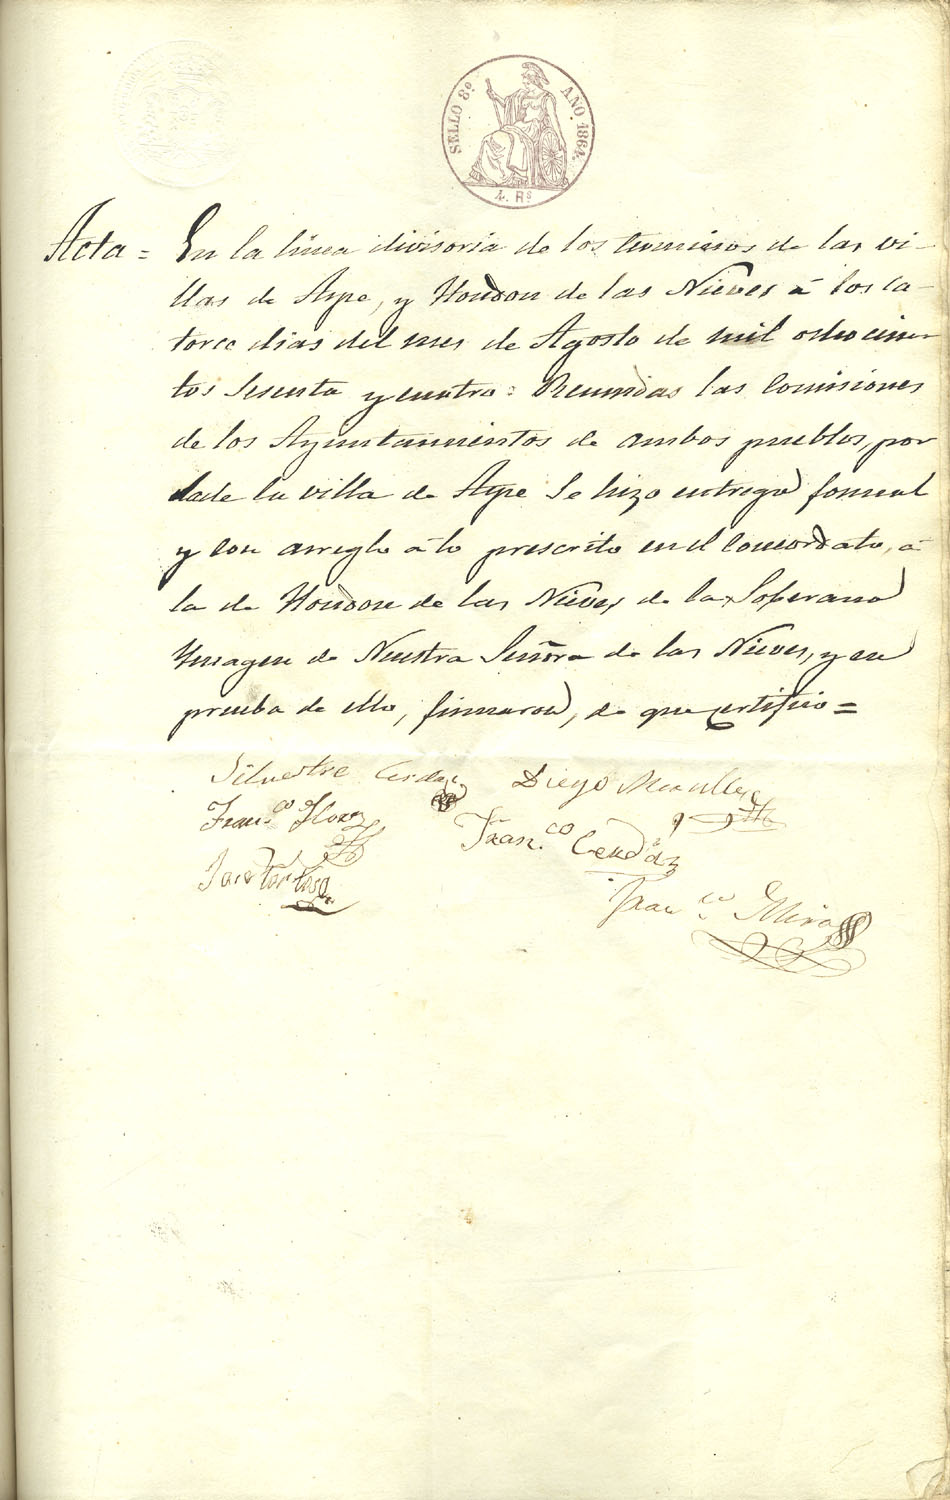 SELLO 8º AÑO 1864.
4. Rs
Acta = En la linea divisoria de los terminos de las vi-
llas de Aspe, y Hondon de las Nieves á los ca-
torce dias del mes de Agosto de mil ochocien
tos Sesenta y cuatro: Reunidas las Comisiones
de los Ayuntamientos de ambos pueblos, por
la de la villa de Aspe Se hizo entrega formal
y con arreglo á lo prescrito en el Concordato, á
la de Hondon de las Nieves de la Soberana
Ymagen de Nuestra Señora de las Nieves, y en
prueba de ello, firmaron, de que certifico =
Silvestre Cerdan Diego
Franco
Franco Cerdán
Franco Mira